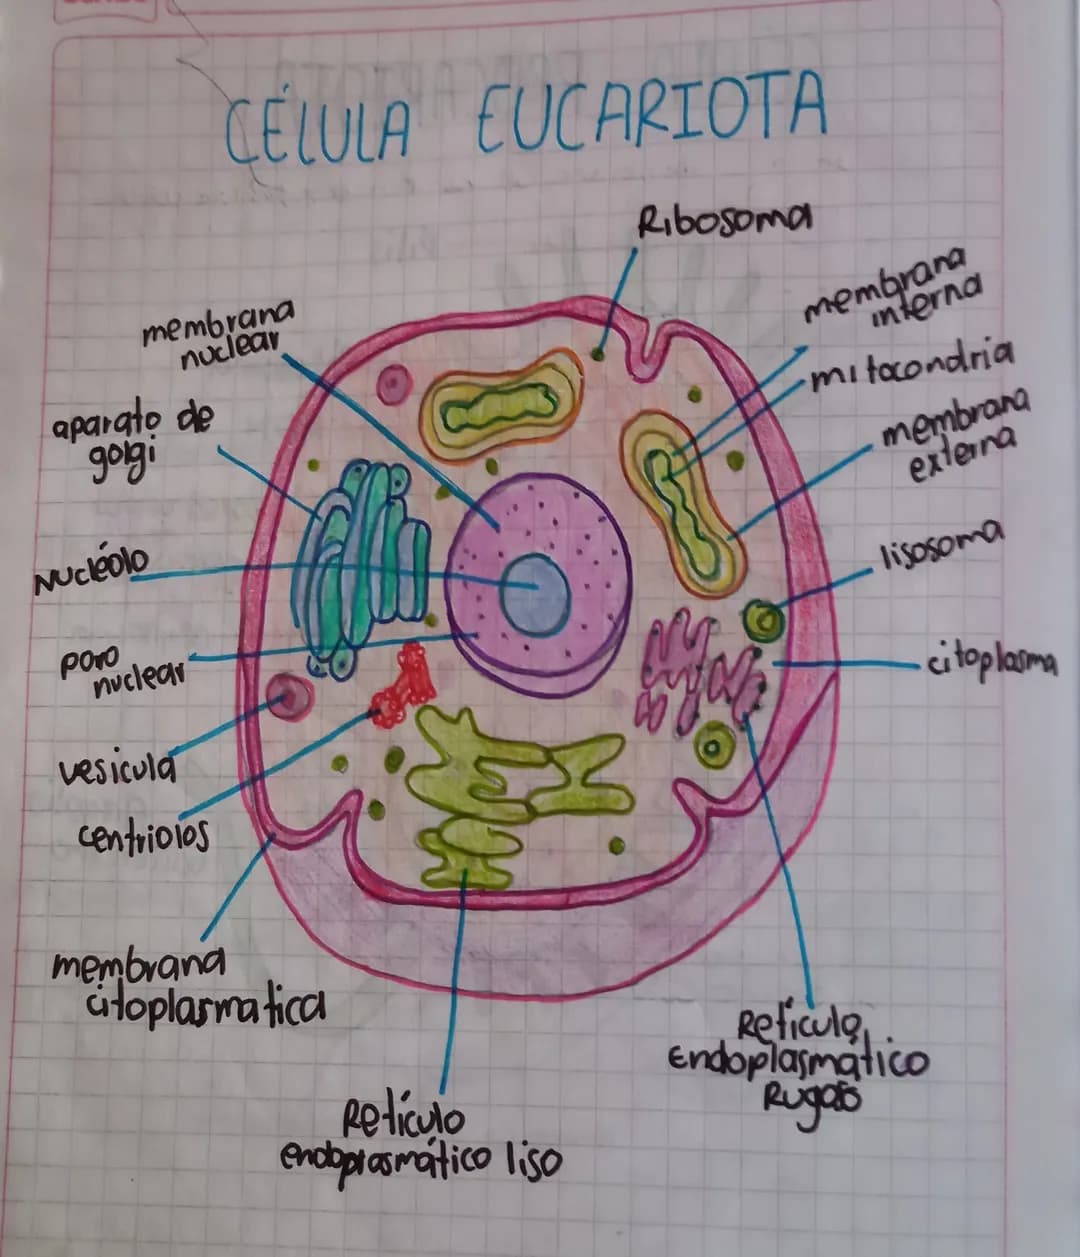 CÉLULA EUCARIOTA
Ribosoma
membrana
interna
mitocondria
membrana
externa
lisosoma
citoplasma
Retículo
Endoplasmático
Rugoso
Retículo
endoplasmático liso
membrana
citoplasmatica
centriolos
vesicula
poro
nuclear
Nucléolo
aparato de
golgi
membrana
nuclear